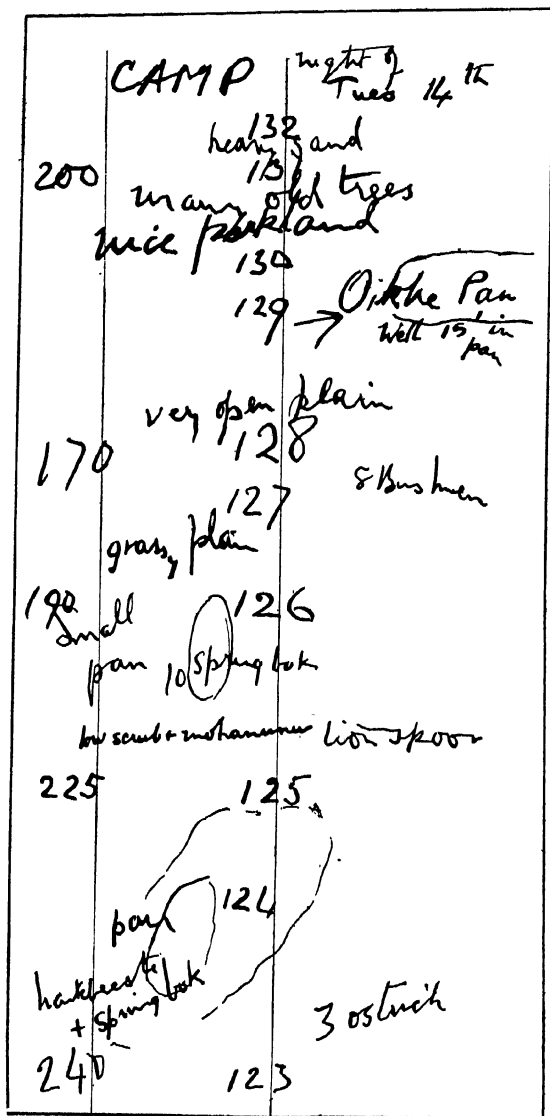 CAMP night of
Tues 14th
132
heavy sand
200 131
many old trees
nice parkland
130
129 → Oikhe Pan
Well 15' in
pan
very open plain
170 128
8 Bushmen
127
grassy plain
190 126
small
pan 10 Springbok
low scrub + lion spoor
225 125
124
pan
hartebeeste
+ Springbok
3 ostrich
240 123